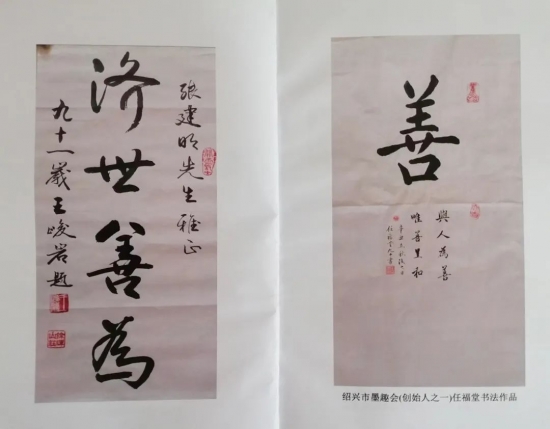 張建明先生雅正
济世善為
九十一歲王峻岩題
善
與人為善
唯善 和
绍兴市墨趣会(创始人之一)任福堂书法作品